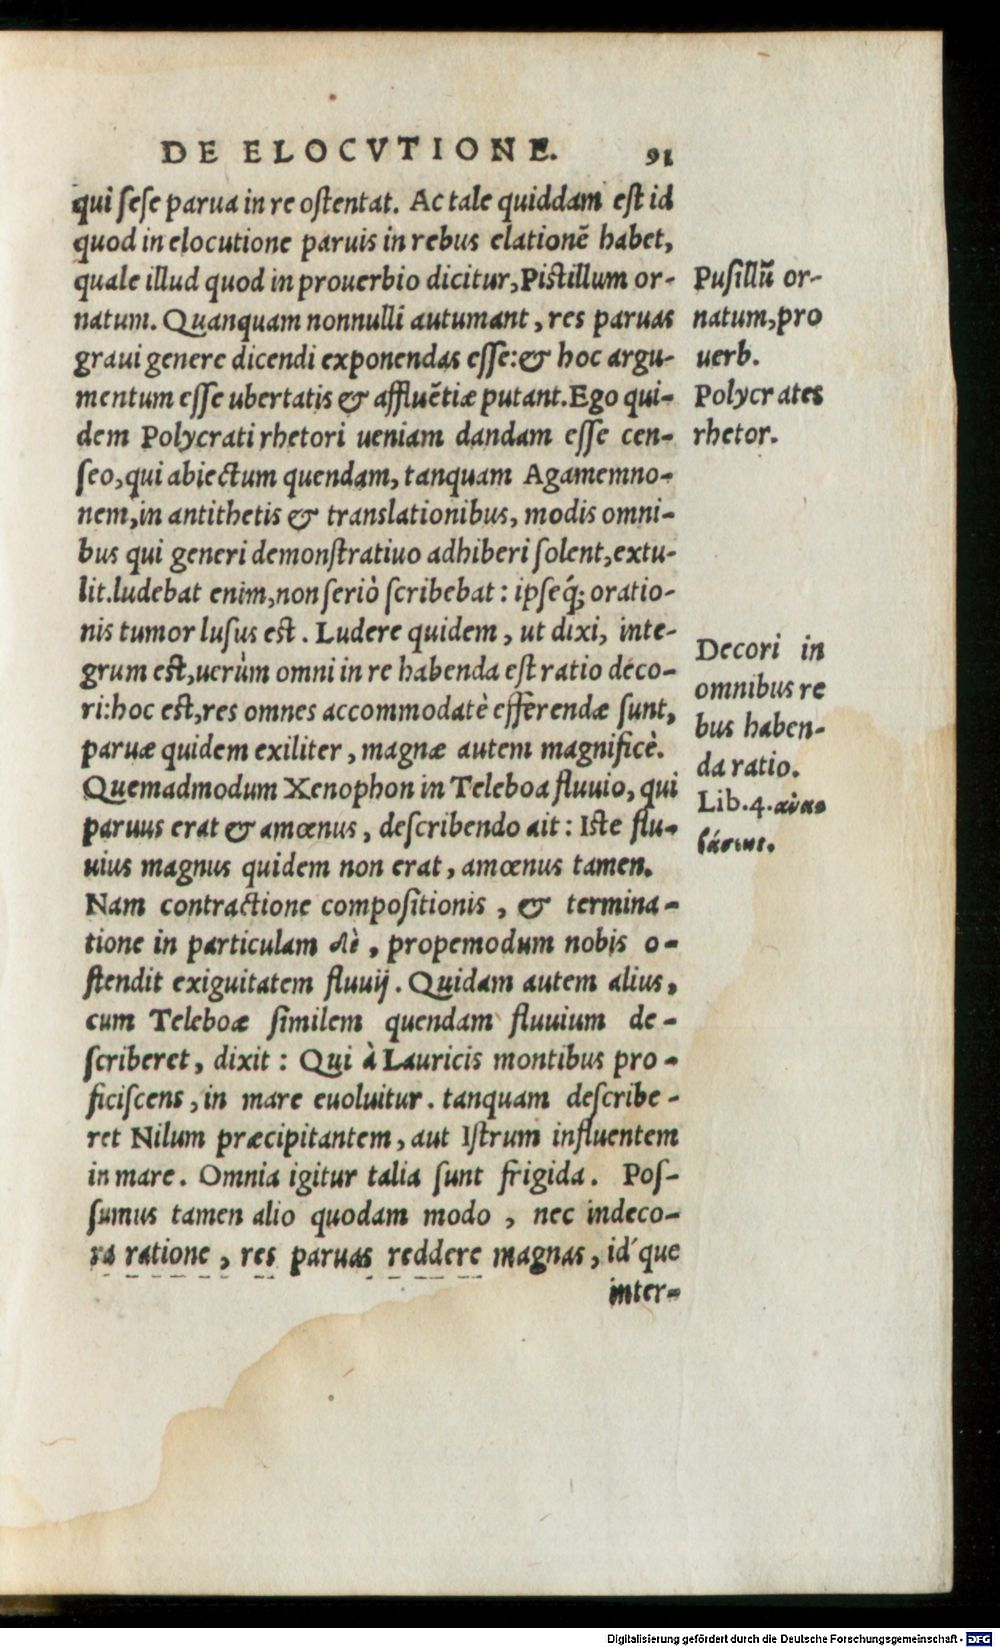 DE ELOCVTIONE. 91
qui sese parua in re ostentat. Ac tale quiddam est id
quod in elocutione paruis in rebus elationē habet,
quale illud quod in prouerbio dicitur, Pistillum or-
natum. Quanquam nonnulli autumant, res paruas
graui genere dicendi exponendas esse: & hoc argu-
mentum esse ubertatis & affluētiæ putant. Ego qui-
dem Polycrati rhetori ueniam dandam esse cen-
seo, qui abiectum quendam, tanquam Agamemno-
nem, in antithetis & translationibus, modis omni-
bus qui generi demonstratiuo adhiberi solent, extu-
lit. ludebat enim, non seriò scribebat: ipseq́; oratio-
nis tumor lusus est. Ludere quidem, ut dixi, inte-
grum est, uerùm omni in re habenda est ratio deco-
ri: hoc est, res omnes accommodatè efferendæ sunt,
paruæ quidem exiliter, magnæ autem magnificè.
Quemadmodum Xenophon in Teleboa fluuio, qui
paruus erat & amœnus, describendo ait: Iste flu-
uius magnus quidem non erat, amœnus tamen.
Nam contractione compositionis, & termina-
tione in particulam δὲ, propemodum nobis o-
stendit exiguitatem fluuij. Quidam autem alius,
cum Teleboæ similem quendam fluuium de-
scriberet, dixit: Qui à Lauricis montibus pro-
ficiscens, in mare euoluitur. tanquam describe-
ret Nilum præcipitantem, aut Istrum influentem
in mare. Omnia igitur talia sunt frigida. Pos-
sumus tamen alio quodam modo, nec indeco-
ra ratione, res paruas reddere magnas, id´que
inter-
Pusillū or-
natum, pro
uerb.
Polycrates
rhetor.
Decori in
omnibus re
bus haben-
da ratio.
Lib.4. ἀναϐάσεως.
Digitalisierung gefördert durch die Deutsche Forschungsgemeinschaft - DFG